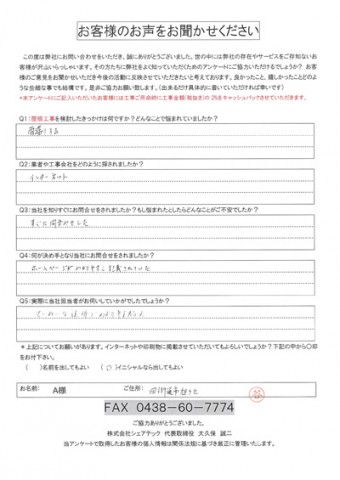 お客様のお声をお聞かせください
この度は弊社にお問い合わせをいただき、誠にありがとうございました。世の中には弊社の存在やサービスをご存知ないお
客様が沢山いらっしゃいます。その方たちに弊社をよく知っていただくためのアンケートにご協力いただけるでしょうか? お客
様のご意見をお聞かせいただき今後の活動に反映させていただきたいと考えております。良かったこと、嬉しかったことどのよ
うな些細な事でも結構です。是非ご協力お願い致します。(出来るだけ具体的に書いていただければ幸いです)
*本アンケートにご記入いただいたお客様には工事ご用命時に工事金額(税抜き)の 2%をキャッシュバックさせていただきます。
Q1:屋根工事を検討したきっかけは何ですか?どんなことで悩まれていましたか?
Q2:業者や工事会社をどのように探されましたか?
インターネット
Q3:当社を知りすぐにお問合せをされましたか?もし悩まれたとしたらどんなことがご不安でしたか?
すぐに問合わせした
Q4:何が決め手となり当社にお問合せをされましたか?
ホームページがわかりやすく記載されていた
Q5:実際に当社担当者がお伺いしていかがでしたでしょうか?
*上記についてお願いがあります。インターネットや印刷物に掲載させていただいてもよろしいでしょうか?下記の中から〇印
をお付け下さい。
( )名前を出してもよい (〇)イニシャルなら出してもよい
お名前: A様 ご住所:
FAX 0438-60-7774
ご協力ありがとうございました。
株式会社シェアテック 代表取締役 大久保 誠二
当アンケートで取得したお客様の個人情報は関係法規に基づき適正に管理いたします。